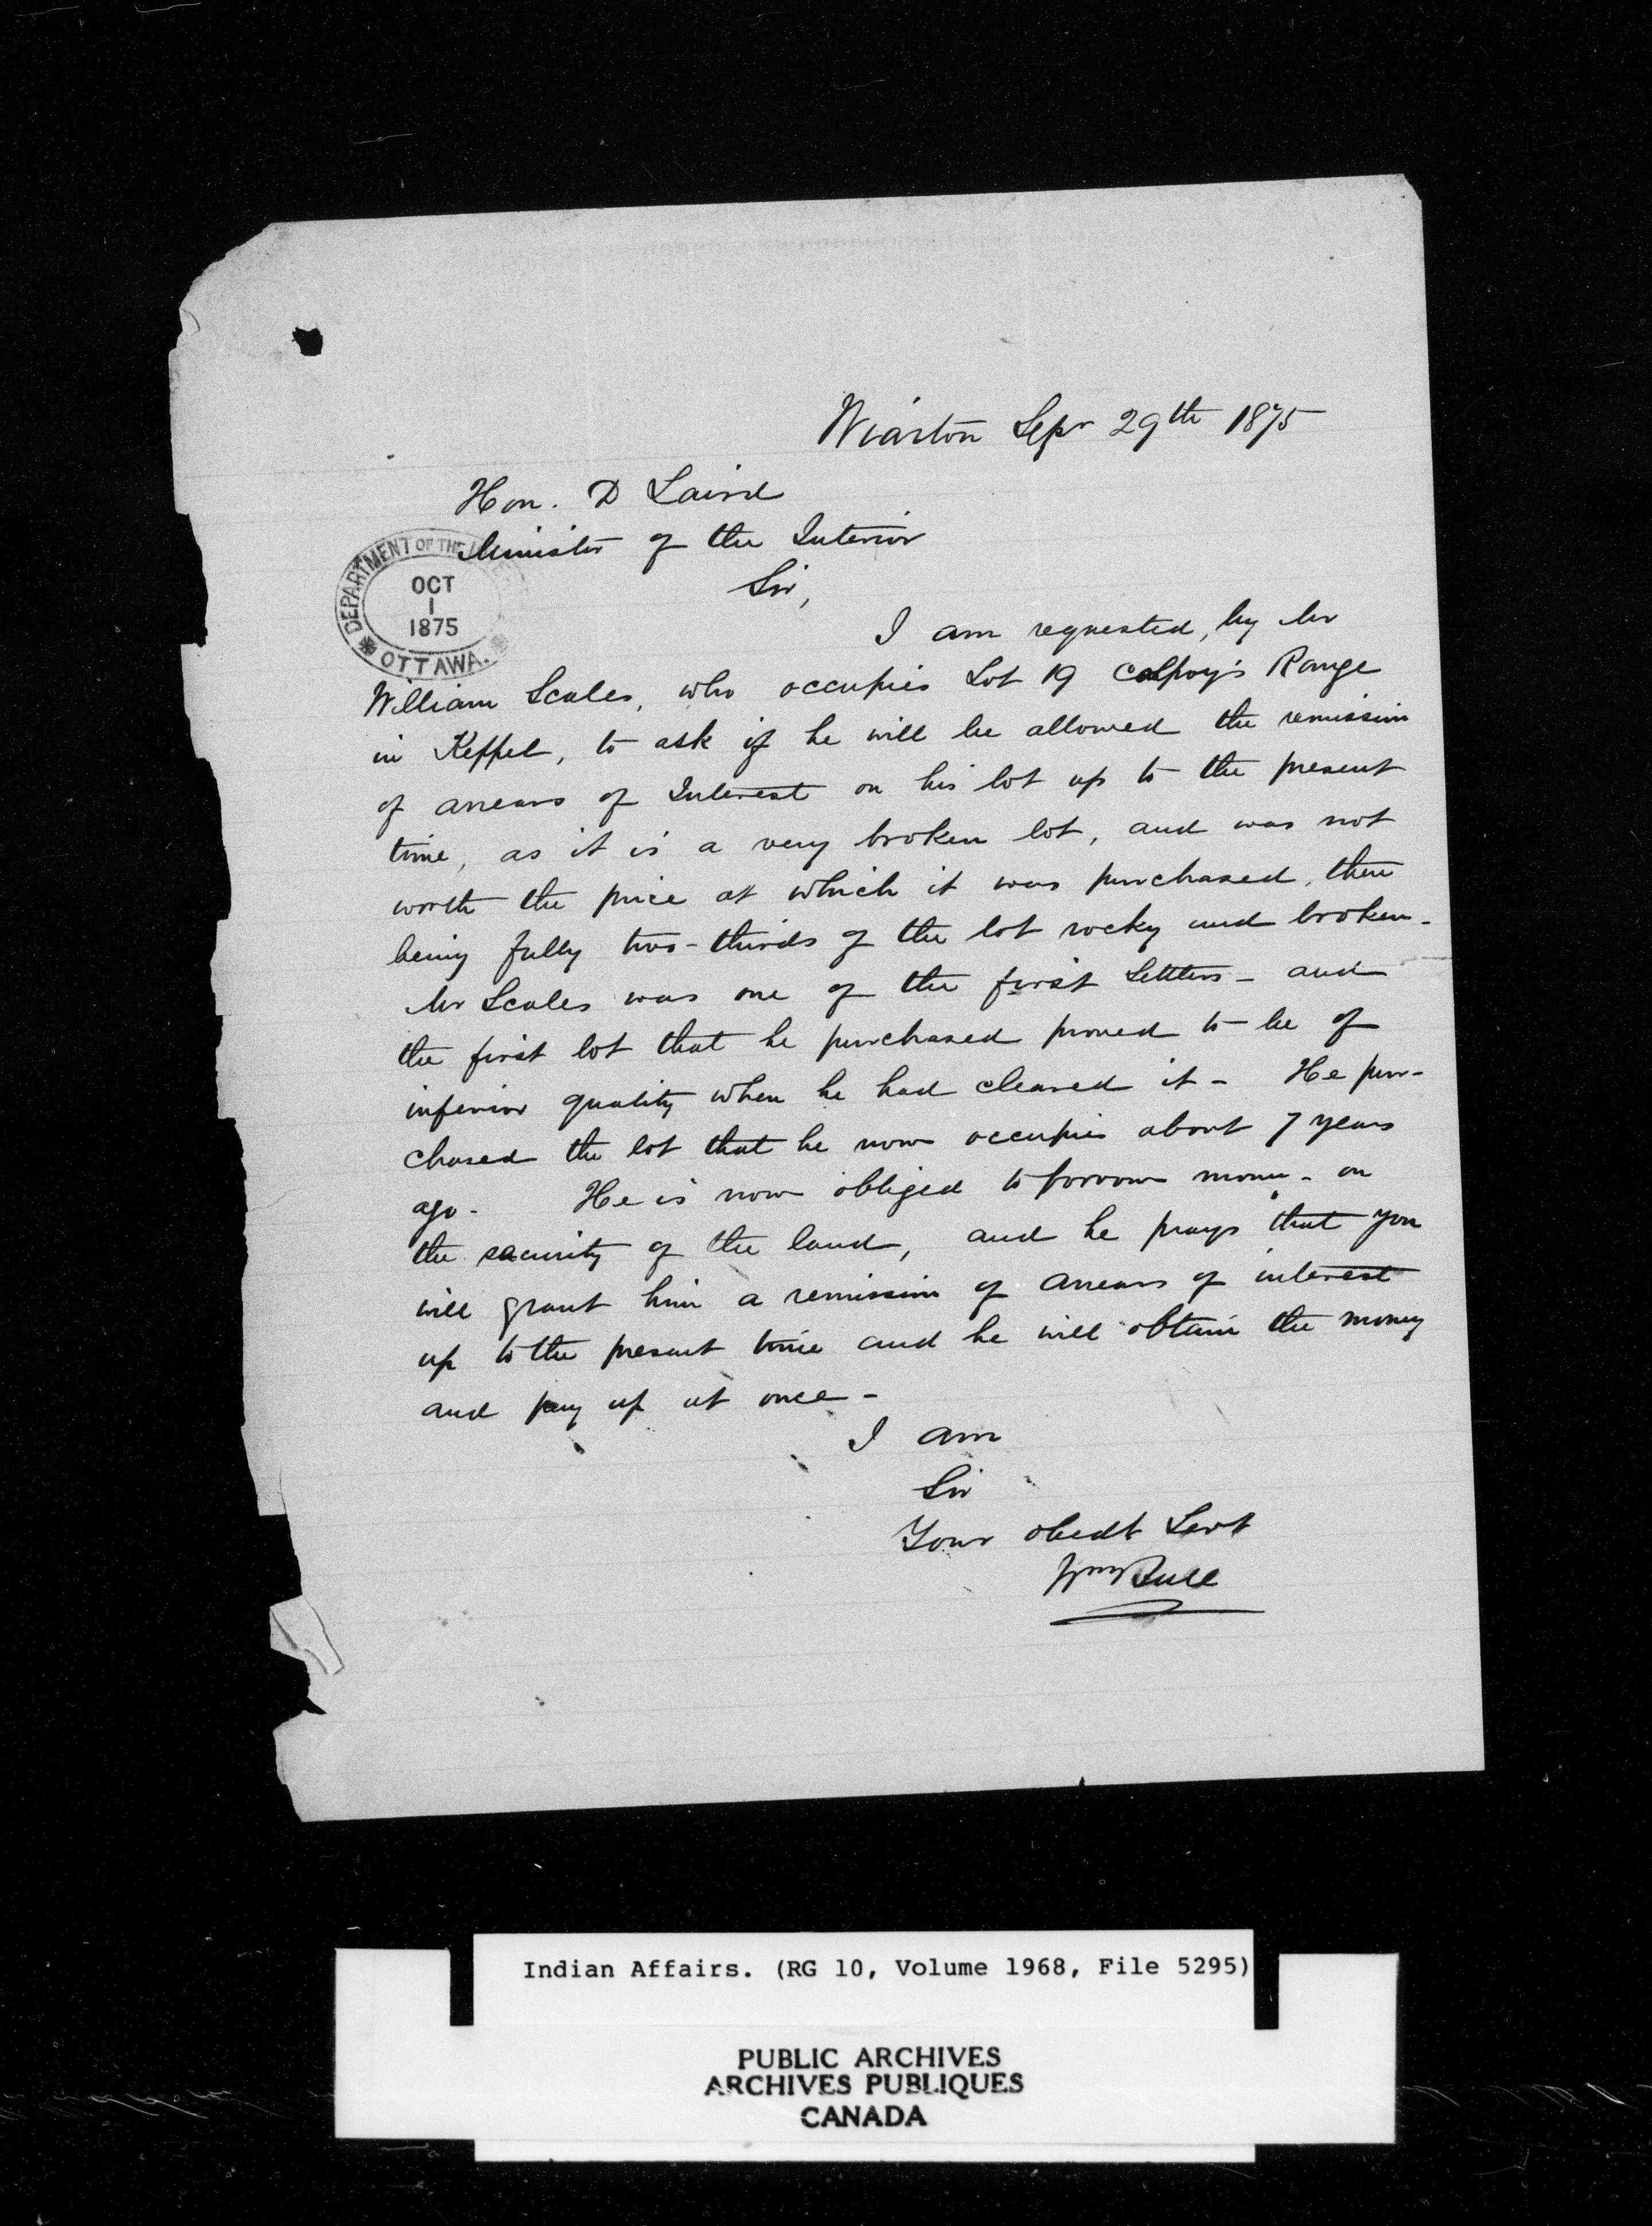 Wiarton Sepr 29th 1875
Hon. D Laird
Minister of the Interior
DEPARTMENT OF THE
OCT
1
1875
OTTAWA.
Sir,
I am requested, by Mr
William Scales, who occupies Lot 19 Colpoy's Range
in Keppel, to ask if he will be allowed the remission
of arrears of Interest on his lot up to the present
time, as it is a very broken lot, and was not
worth the price at which it was purchased, there
being fully two-thirds of the lot rocky and broken -
Mr Scales was one of the first Settlers - and
the first lot that he purchased proved to be of
inferior quality when he had cleared it - He pur-
chased the lot that he now occupies about 7 years
ago - He is now obliged to borrow money - on
the security of the land, and he prays that you
will grant him a remission of arrears of interest
up to the present time and he will obtain the money
and pay up at once -
I am
Sir
Your obedt Servt
Wm Bull
Indian Affairs. (RG 10, Volume 1968, File 5295)
PUBLIC ARCHIVES
ARCHIVES PUBLIQUES
CANADA